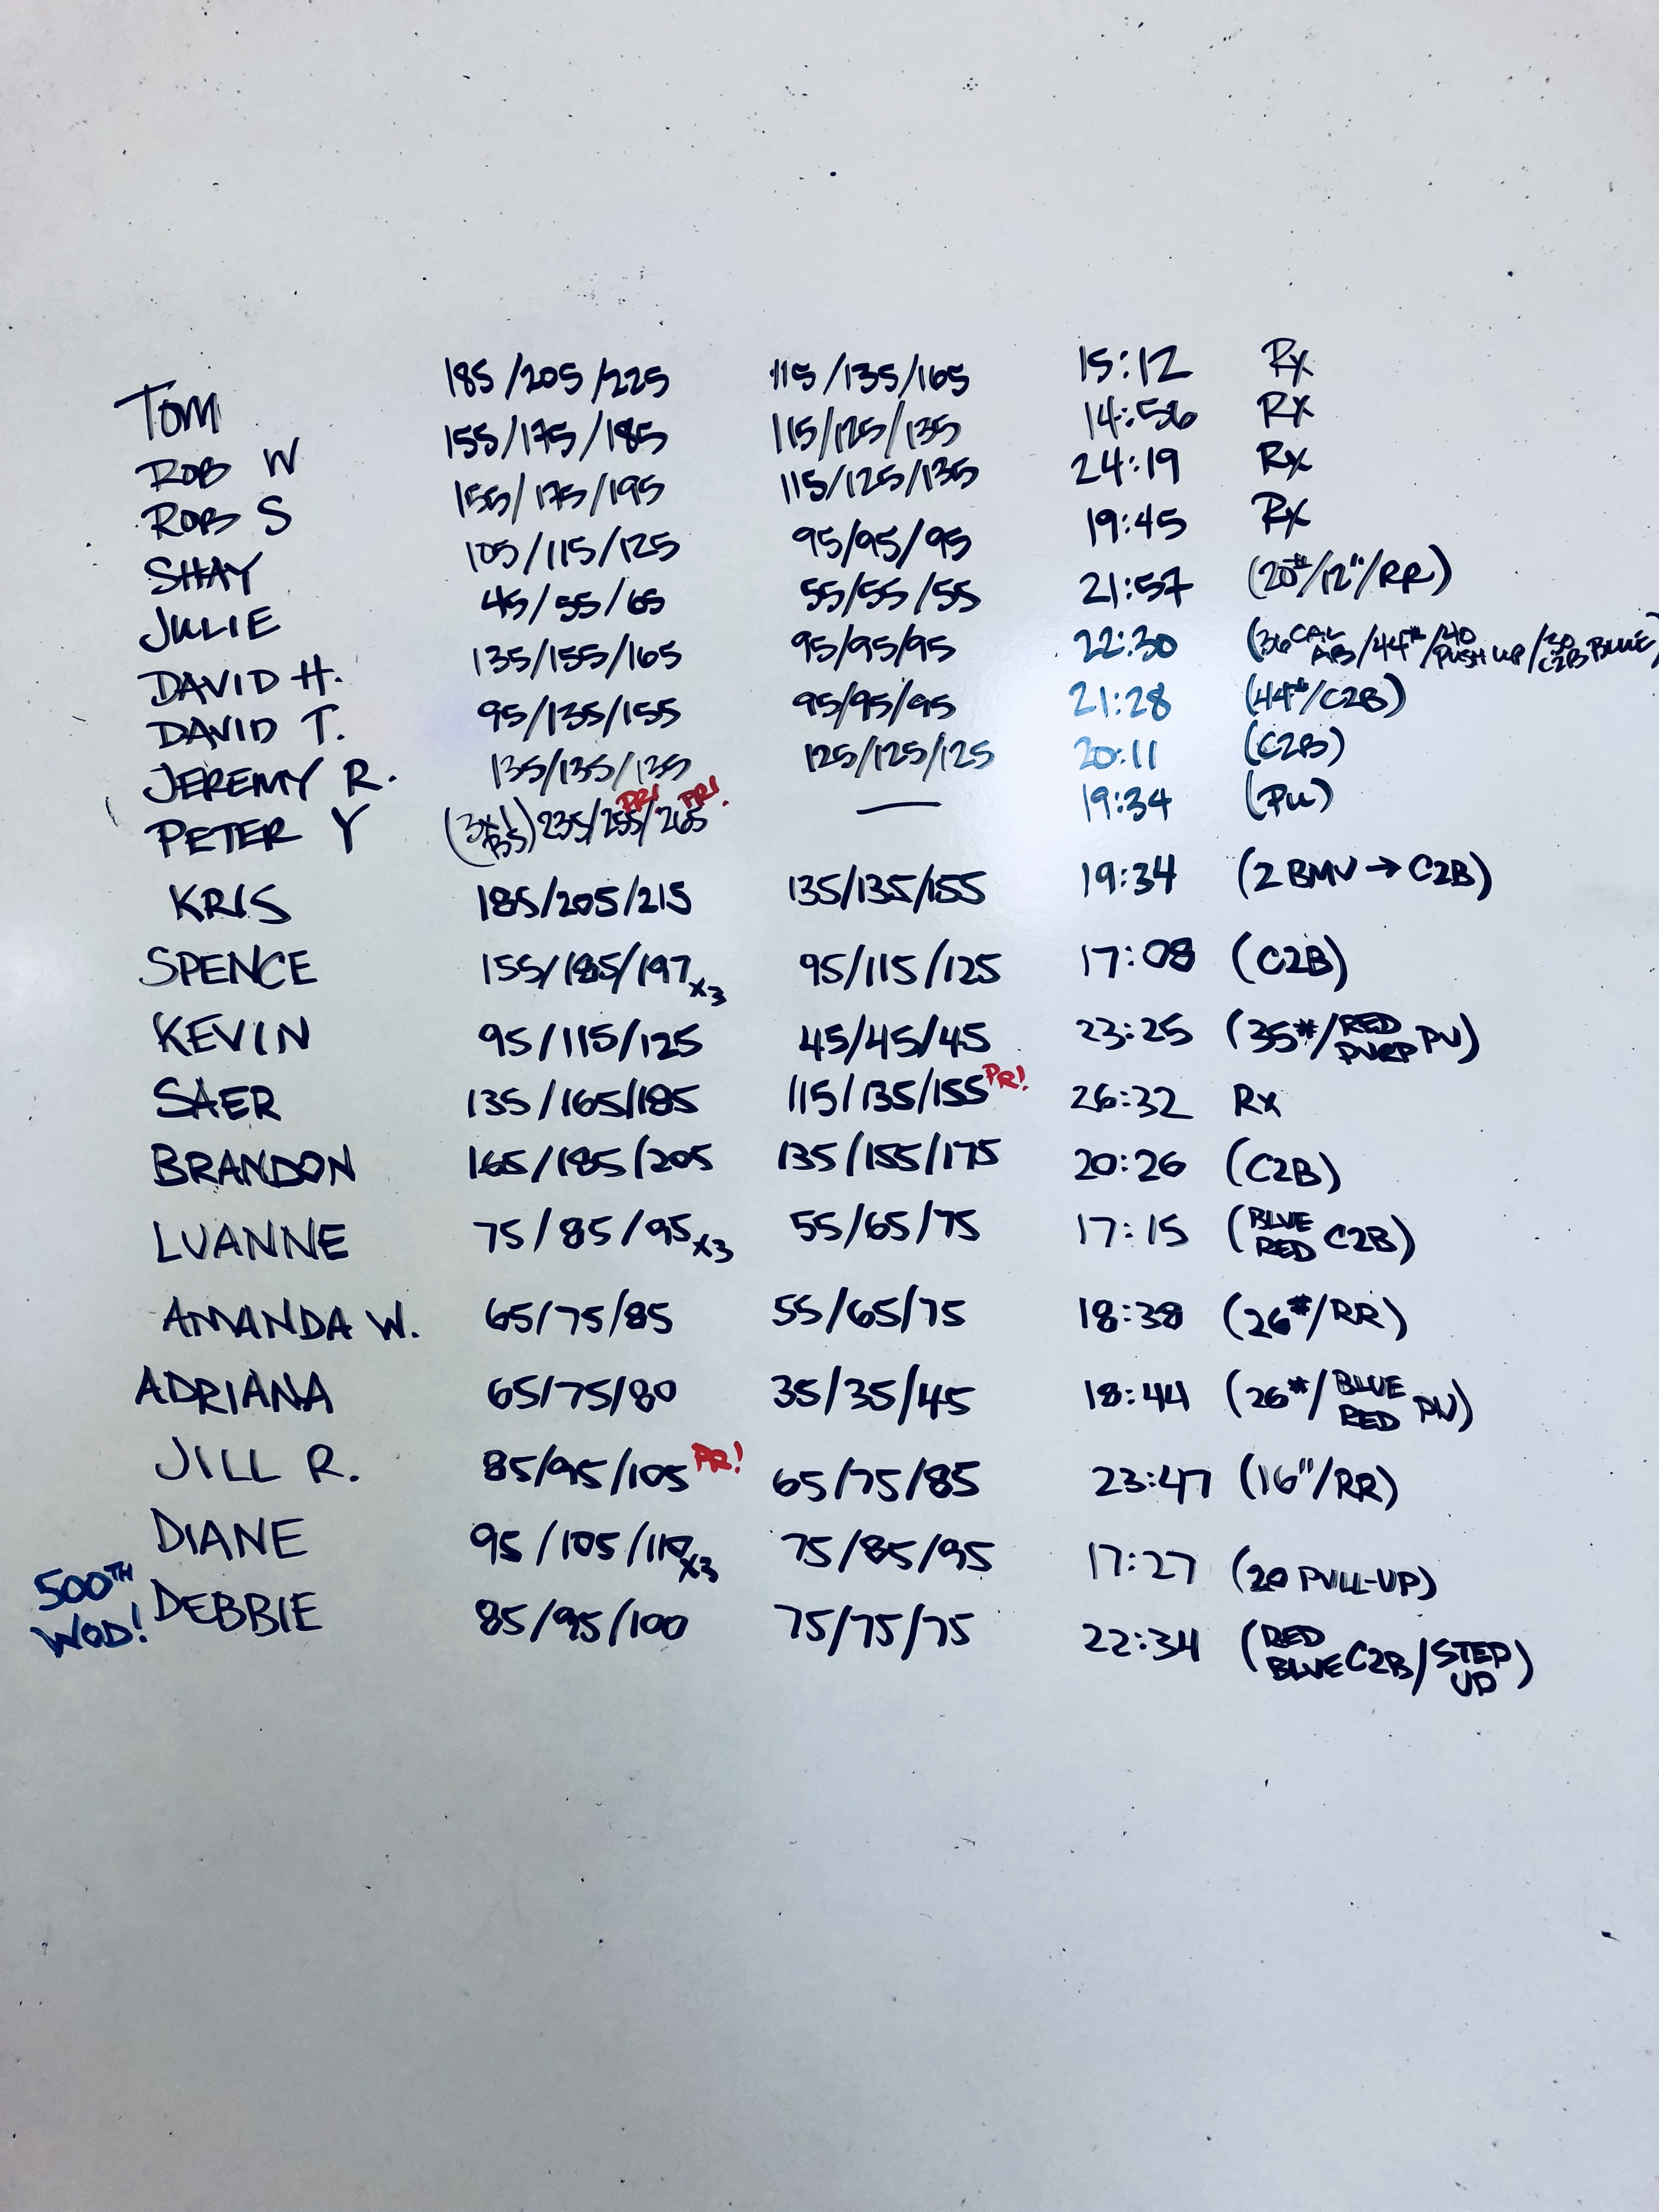 TOM 185/205/225 115/135/165 15:12 Rx
ROB W 155/175/185 115/125/135 14:56 Rx
ROB S 155/175/195 115/125/135 24:19 Rx
SHAY 105/115/125 95/95/95 19:45 Rx
JULIE 45/55/65 55/55/55 21:57 (20#/12"/RR)
DAVID H. 135/155/165 95/95/95 22:30 (36 CAL AB/44#/40 PUSH UP/30 C2B BLUE)
DAVID T. 95/135/155 95/95/95 21:28 (44#/C2B)
JEREMY R. 135/135/135 125/125/125 20:11 (C2B)
PETER Y (3x1 BS) 235/255 PR!/265 PR! — 19:34 (PU)
KRIS 185/205/215 135/135/155 19:34 (2 BMU → C2B)
SPENCE 155/185/197 x3 95/115/125 17:08 (C2B)
KEVIN 95/115/125 45/45/45 23:25 (35#/RED PURP PU)
SAER 135/165/185 115/135/155 PR! 26:32 Rx
BRANDON 165/185/205 135/155/175 20:26 (C2B)
LUANNE 75/85/95 x3 55/65/75 17:15 (BLUE RED C2B)
AMANDA W. 65/75/85 55/65/75 18:38 (26#/RR)
ADRIANA 65/75/80 35/35/45 18:44 (26#/BLUE RED PU)
JILL R. 85/95/105 PR! 65/75/85 23:47 (16"/RR)
DIANE 95/105/110 x3 75/85/95 17:27 (20 PULL-UP)
500TH WOD! DEBBIE 85/95/100 75/75/75 22:34 (RED BLUE C2B/STEP UP)